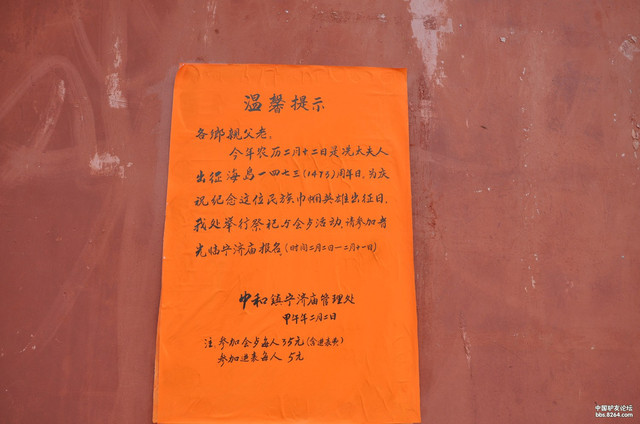 温馨提示
各鄉親父老,
今年农历二月十二日是冼太夫人
出征海岛一四七三(1473)周年日,为庆
祝纪念这位民族巾帼英雄出征日,
我处举行祭祀与会歺活动,请参加者
光临宁济庙报名(时间二月二日—二月十一日)
中和鎮宁济庙管理处
甲午年二月二日
注:参加会歺每人35元(含进表表)
参加进表每人5元
中国驴友论坛
bbs.8264.com